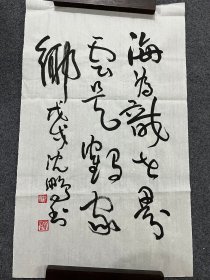 海为龍世界
雲是鶴家
鄉 戊戌沈鹏书